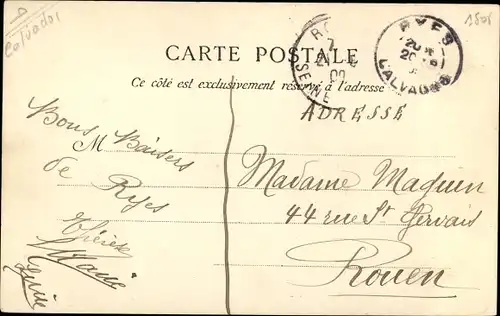 Calvados
1508
CARTE POSTALE
Ce côté est exclusivement réservé à l'adresse
RYES
20
CALVADOS
SEINE
ADRESSE
M
Bons Baisers
de Ryes
Marie
Madame Maquin
44 rue St Gervais
Rouen